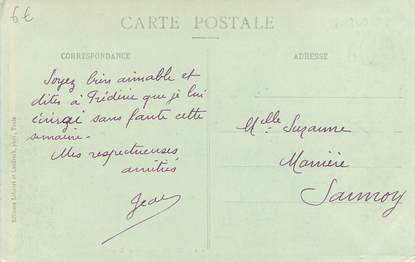 6€
CARTE POSTALE
CORRESPONDANCE
ADRESSE
Soyez bien aimable et
dites à Frédine que je lui
écrirai sans faute cette
semaine.
Mes respectueuses
amitiés
Jean
Mlle Suzanne
Sannoy